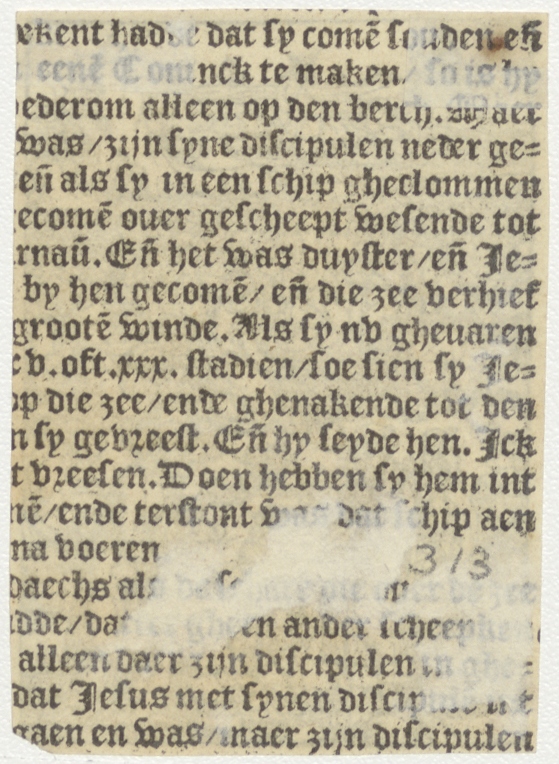 ekent hadde dat sy comē souden eñ
eenē Co nck te maken / so is hy
ederom alleen op den berch. Maer
was/zijn syne discipulen neder ge=
eñ als sy in een schip gheclommen
ecomē ouer gescheept wesende tot
rnaū. Eñ het was duyster/eñ Je=
by hen gecomē/ eñ die zee verhief
grootē winde. Als sy nv gheuaren
v. oft .xxx. stadien/soe sien sy Je=
op die zee/ende ghenakende tot den
n sy gevreest. Eñ hy seyde hen. Ick
t vreesen. Doen hebben sy hem int
mē/ende terstont was dat schip aen
na voeren
313
daechs als
dde/dat een ander scheepken
alleen daer zijn discipulen in ghe=
dat Jesus met synen discip
gaen en was/maer zijn discipulen